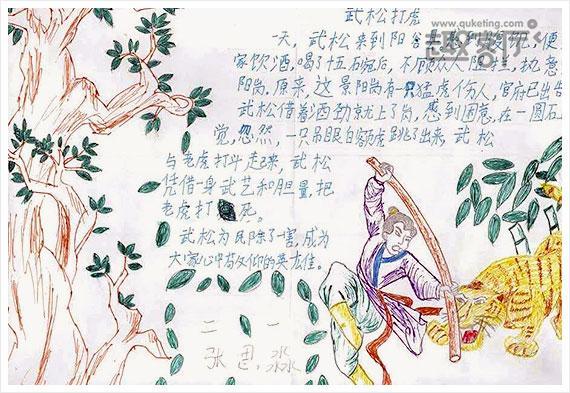 www.quketing.com
武松打虎
一天，武松来到阳谷 便
家饮酒，喝了十五碗后，不顾众人阻拦，执意
阳岗，原来，这景阳岗有一只猛虎伤人，官府已出告
武松借着酒劲京尤上了岗，感到困意，在一圆石
觉，忽然，一只吊眼白额虎跳了出来，武松
与老虎打斗起来，武松
凭借一身武艺和胆量，把
老虎打 死。
武松为民除了一害，成为
大家心中 仰的英
二 一
张 淼